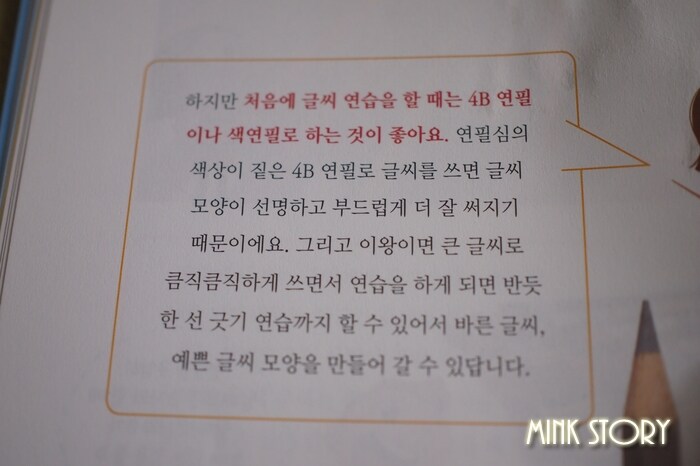 하지만 처음에 글씨 연습을 할 때는 4B 연필
이나 색연필로 하는 것이 좋아요. 연필심의
색상이 짙은 4B 연필로 글씨를 쓰면 글씨
모양이 선명하고 부드럽게 더 잘 써지기
때문이에요. 그리고 이왕이면 큰 글씨로
큼직큼직하게 쓰면서 연습을 하게 되면 반듯
한 선 긋기 연습까지 할 수 있어서 바른 글씨,
예쁜 글씨 모양을 만들어 갈 수 있답니다.
MINK STORY